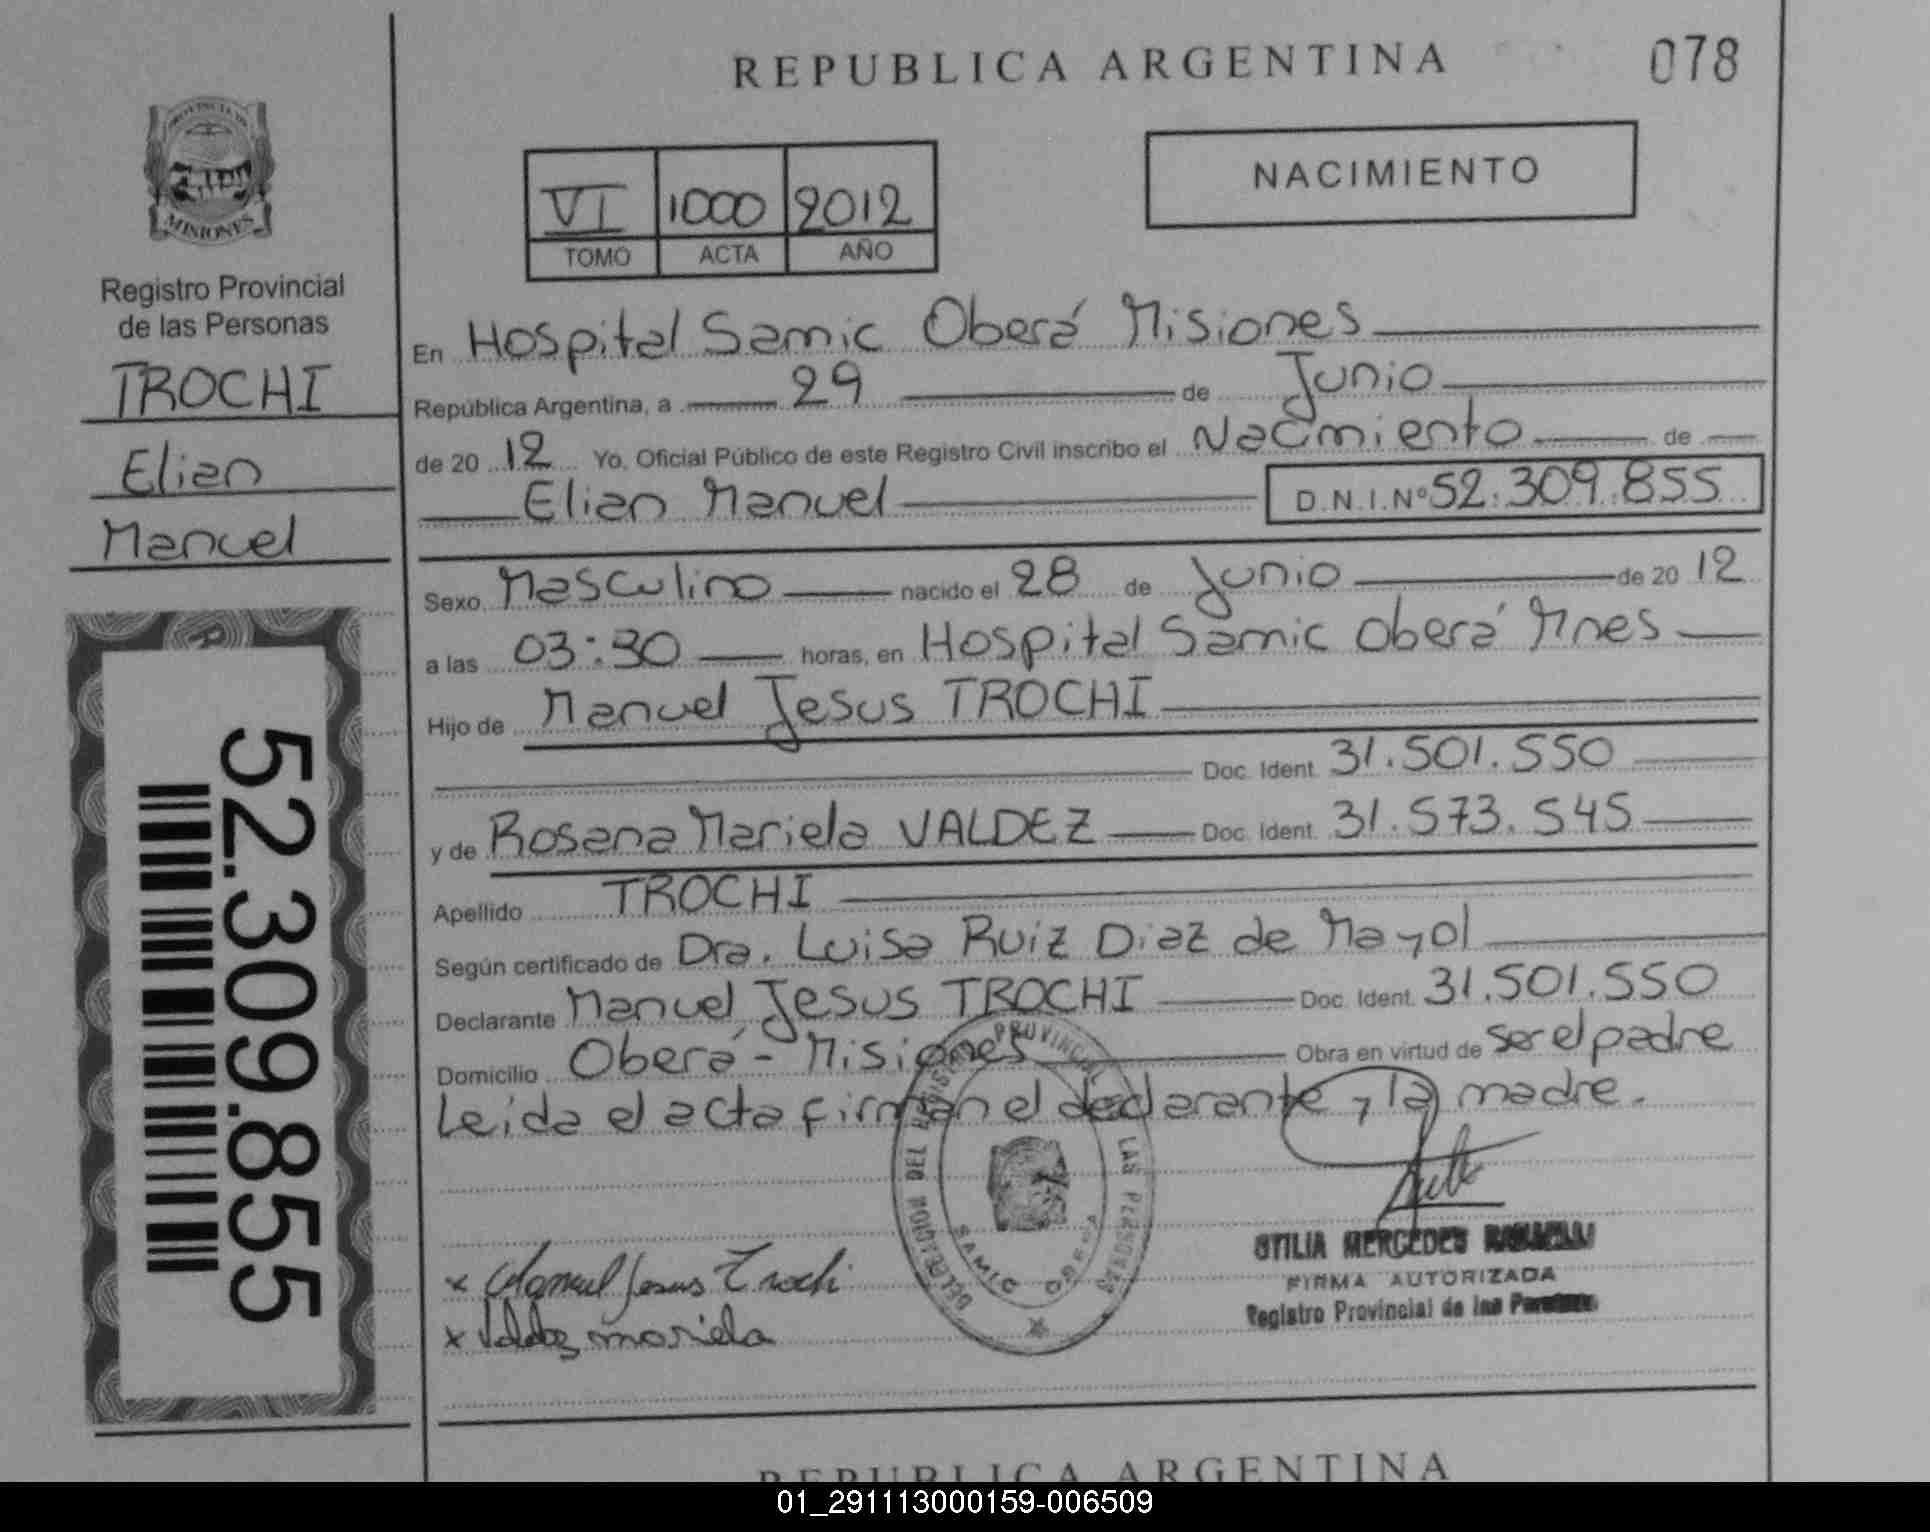 REPUBLICA ARGENTINA
078
PROVINCIA DE
MISIONES
Registro Provincial
de las Personas
TROCHI
Elian
Manuel
52.309.855
VI 1000 2012
TOMO ACTA AÑO
NACIMIENTO
En Hospital Samic Oberá Misiones
República Argentina, a 29 de Junio
de 20 12 Yo, Oficial Público de este Registro Civil inscribo el Nacimiento de
Elian Manuel D.N.I.Nº 52.309.855
Sexo Masculino nacido el 28 de Junio de 20 12
a las 03:30 horas, en Hospital Samic Oberá Mnes
Hijo de Manuel Jesus TROCHI
Doc. Ident. 31.501.550
y de Rosana Mariela VALDEZ Doc. Ident. 31.573.545
Apellido TROCHI
Según certificado de Dra. Luisa Ruiz Diaz de Mayol
Declarante Manuel Jesus TROCHI Doc. Ident. 31.501.550
Domicilio Oberá - Misiones Obra en virtud de ser el padre
Leida el acta firman el declarante y la madre.
DELEGACION DEL REGISTRO PROVINCIAL DE LAS PERSONAS
SAMIC OBERA
x Manuel Jesus Trochi
x Valdez mariela
OTILIA MERCEDES
FIRMA AUTORIZADA
Registro Provincial de las Personas
REPUBLICA ARGENTINA
01_291113000159-006509